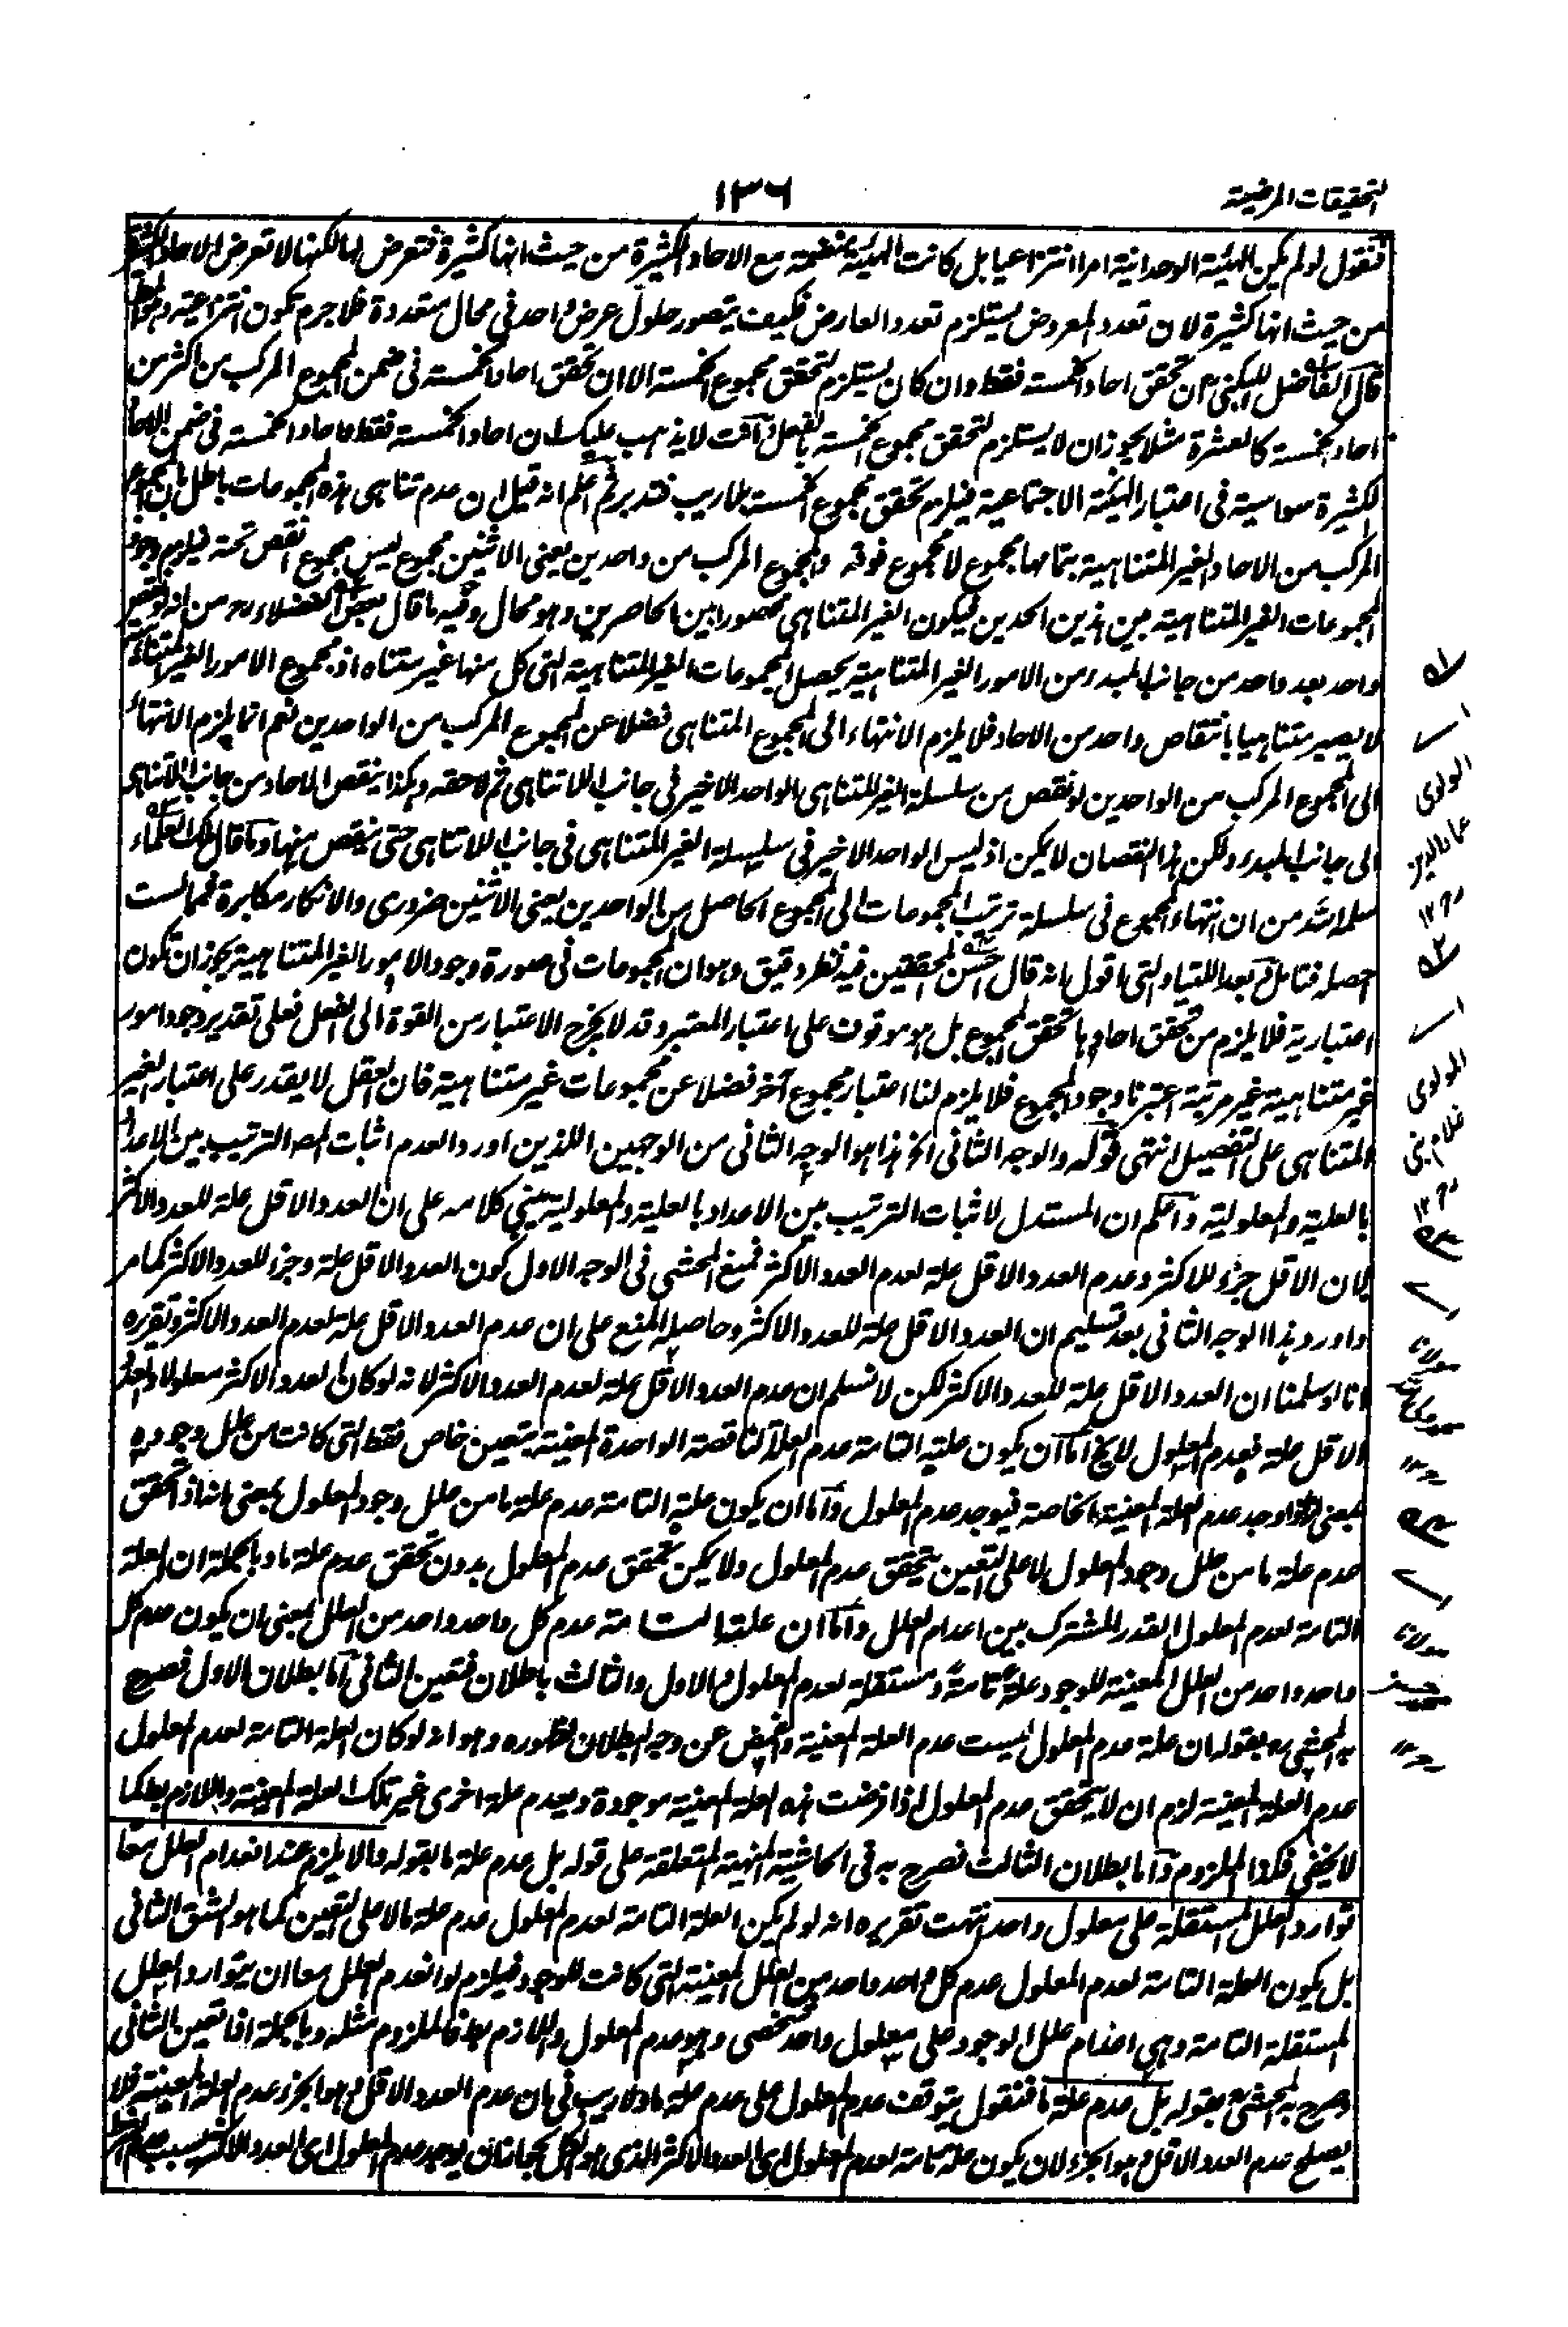 التحقيقات المرضية
١٣٦
فنقول لو لم يكن الهيئة الوحدانية امرا انتزاعيا بل كانت الهيئة منضمة مع الاحاد الكثيرة من حيث انها كثيرة فتعرض لها لكنها لا تعرض الاحاد الكثيرة
من حيث انها كثيرة لان تعدد المعروض يستلزم تعدد العارض فكيف يتصور حلول عرض واحد في محال متعددة فلا جرم تكون انتزاعية
قال الفاضل اللبكني ان تحقق احاد الخمسة فقط وان كان يستلزم لتحقق مجموع الخمسة الا ان تحقق احاد الخمسة في ضمن المجموع المركب من اكثر من
احاد الخمسة كالعشرة مثلا يجوز ان لا يستلزم لتحقق مجموع الخمسة بالفعل انت لا يذهب عليك ان احاد الخمسة فقط واحاد الخمسة في ضمن الاحاد
الكثيرة سواسية في اعتبار الهيئة الاجتماعية فيلزم تحقق مجموع الخمسة بلا ريب فتدبر ثم اعلم انه قيل ان عدم تناهي هذه المجموعات باطل بان المجموع
المركب من الاحاد الغير المتناهية بتمامها مجموع لا مجموع فوقه والمجموع المركب من واحدين يعني الاثنين مجموع ليس مجموع انقص تحته فيلزم وجود
المجموعات الغير المتناهية بين هذين الحدين فيكون الغير المتناهي محصورا بين الحاصرين وهو محال وفيه ما قال بعض الفضلاء من انه لو نقص
واحد بعد واحد من جانب المبدء من الامور الغير المتناهية يحصل المجموعات الغير المتناهية التي كل منها غير متناه اذ مجموع الامور الغير المتناهية
لا يصير متناهيا بانتقاص واحد من الاحاد فلا يلزم الانتهاء الى المجموع المتناهي فضلا عن المجموع المركب من الواحدين نعم انما يلزم الانتهاء
الى المجموع المركب من الواحدين لو نقص من سلسلة الغير المتناهي الواحد الاخير في جانب اللاتناهي ثم لاحقه وهكذا ينقص الاحاد من جانب اللاتناهي
الى جانب المبدء ولكن هذا النقصان لا يمكن اذ ليس الواحد الاخير في سلسلة الغير المتناهي في جانب اللاتناهي حتى ينقص منها وما قال ملك العلماء
سلمه الله من ان انتهاء المجموع في سلسلة ترتيب المجموعات الى المجموع الحاصل من الواحدين يعني الاثنين ضروري والانكار مكابرة فما لست
احصله فتامل ثم بعد اللتيا والتي اقول انه قال احسن المحققين فيه نظر دقيق وهو ان المجموعات في صورة وجود الامور الغير المتناهية يجوز ان تكون
اعتبارية فلا يلزم من تحقق احادها تحقق المجموع بل هو موقوف على اعتبار المعتبر وقد لا يخرج الاعتبار من القوة الى الفعل فعلى تقدير وجود امور
غير متناهية غير مرتبة اعتبرنا وجود المجموع فلا يلزم لنا اعتبار مجموع آخر فضلا عن مجموعات غير متناهية فان العقل لا يقدر على اعتبار الغير
المتناهي على التفصيل انتهى قوله والوجه الثاني الخ هذا هو الوجه الثاني من الوجهين اللذين اورد العدم اثبات المص الترتيب بين الاعداد
بالعلية والمعلولية واعلم ان المستدل لاثبات الترتيب بين الاعداد بالعلية والمعلولية يبني كلامه على ان العدد الاقل علة للعدد الاكثر
لان الاقل جزء للاكثر وعدم العدد الاقل علة لعدم العدد الاكثر فمنع المحشي في الوجه الاول كون العدد الاقل علة وجزء للعدد الاكثر كما مر
واورد هذا الوجه الثاني بعد تسليم ان العدد الاقل علة للعدد الاكثر وحاصله المنع على ان عدم العدد الاقل علة لعدم العدد الاكثر وتقريره
انا لو سلمنا ان العدد الاقل علة للعدد الاكثر لكن لا نسلم ان عدم العدد الاقل علة لعدم العدد الاكثر لانه لو كان العدد الاكثر معلولا والعدد
الاقل علة فعدم المعلول لا يخ اما ان يكون علته التامة عدم العلة الناقصة الواحدة المعينة بتعين خاص فقط التي كانت من علل وجوده
بمعنى اذا وجد عدم العلة المعينة الخاصة فيوجد عدم المعلول واما ان يكون علته التامة عدم علة ما من علل وجود المعلول بمعنى انه اذا تحقق
عدم علة ما من علل وجود المعلول لا على التعين يتحقق عدم المعلول ولا يمكن تحقق عدم المعلول بدون تحقق عدم علة ما وبالجملة ان العلة
التامة لعدم المعلول القدر المشترك بين اعدام العلل واما ان علته التامة عدم كل واحد واحد من العلل بمعنى ان يكون عدم كل
واحد واحد من العلل المعينة للوجود علة تامة ومستقلة لعدم المعلول والاول والثالث باطلان فتعين الثاني اما بطلان الاول فصرح
به المحشي ره بقوله ان علة عدم المعلول ليست عدم العلة المعينة واغمض عن وجه البطلان لظهوره وهو انه لو كان العلة التامة لعدم المعلول
عدم العلة المعينة لزم ان لا يتحقق عدم المعلول اذا فرضت هذه العلة المعينة موجودة ويعدم علة اخرى غير تلك العلة المعينة واللازم بط كما
لا يخفى فكذا الملزوم واما بطلان الثالث فصرح به في الحاشية المنهية المتعلقة على قوله بل عدم علة ما بقوله والا يلزم عند انعدام العلل معا
توارد العلل المستقلة على معلول واحد انتهت تقريره انه لو لم يكن العلة التامة لعدم المعلول عدم علة ما لا على التعين كما هو الشق الثاني
بل يكون العلة التامة لعدم المعلول عدم كل واحد واحد من العلل المعينة التي كانت للوجود فيلزم لو انعدم العلل معا ان يتوارد العلل
المستقلة التامة وهي اعدام علل الوجود على معلول واحد شخصي وهو عدم المعلول واللازم بط فالملزوم مثله وبالجملة اذا تعين الثاني
وصرح به المحشي بقوله بل عدم علة ما فنقول يتوقف عدم المعلول على عدم علة ما ولا ريب في ان عدم العدد الاقل وهو الجزء عدم العلة المعينة فلا
يصلح عدم العدد الاقل وهو الجزء لان يكون علة تامة لعدم المعلول اي العدد الاكثر الذي هو الكل لجواز ان يوجد عدم المعلول اي العدد الاكثر بسبب عدم
ل١
المولوي
عماد الدين
١٢
ل٢
المولوي
غلام نبي
١٢
مولانا
١٢
مولانا
حسن
١٢